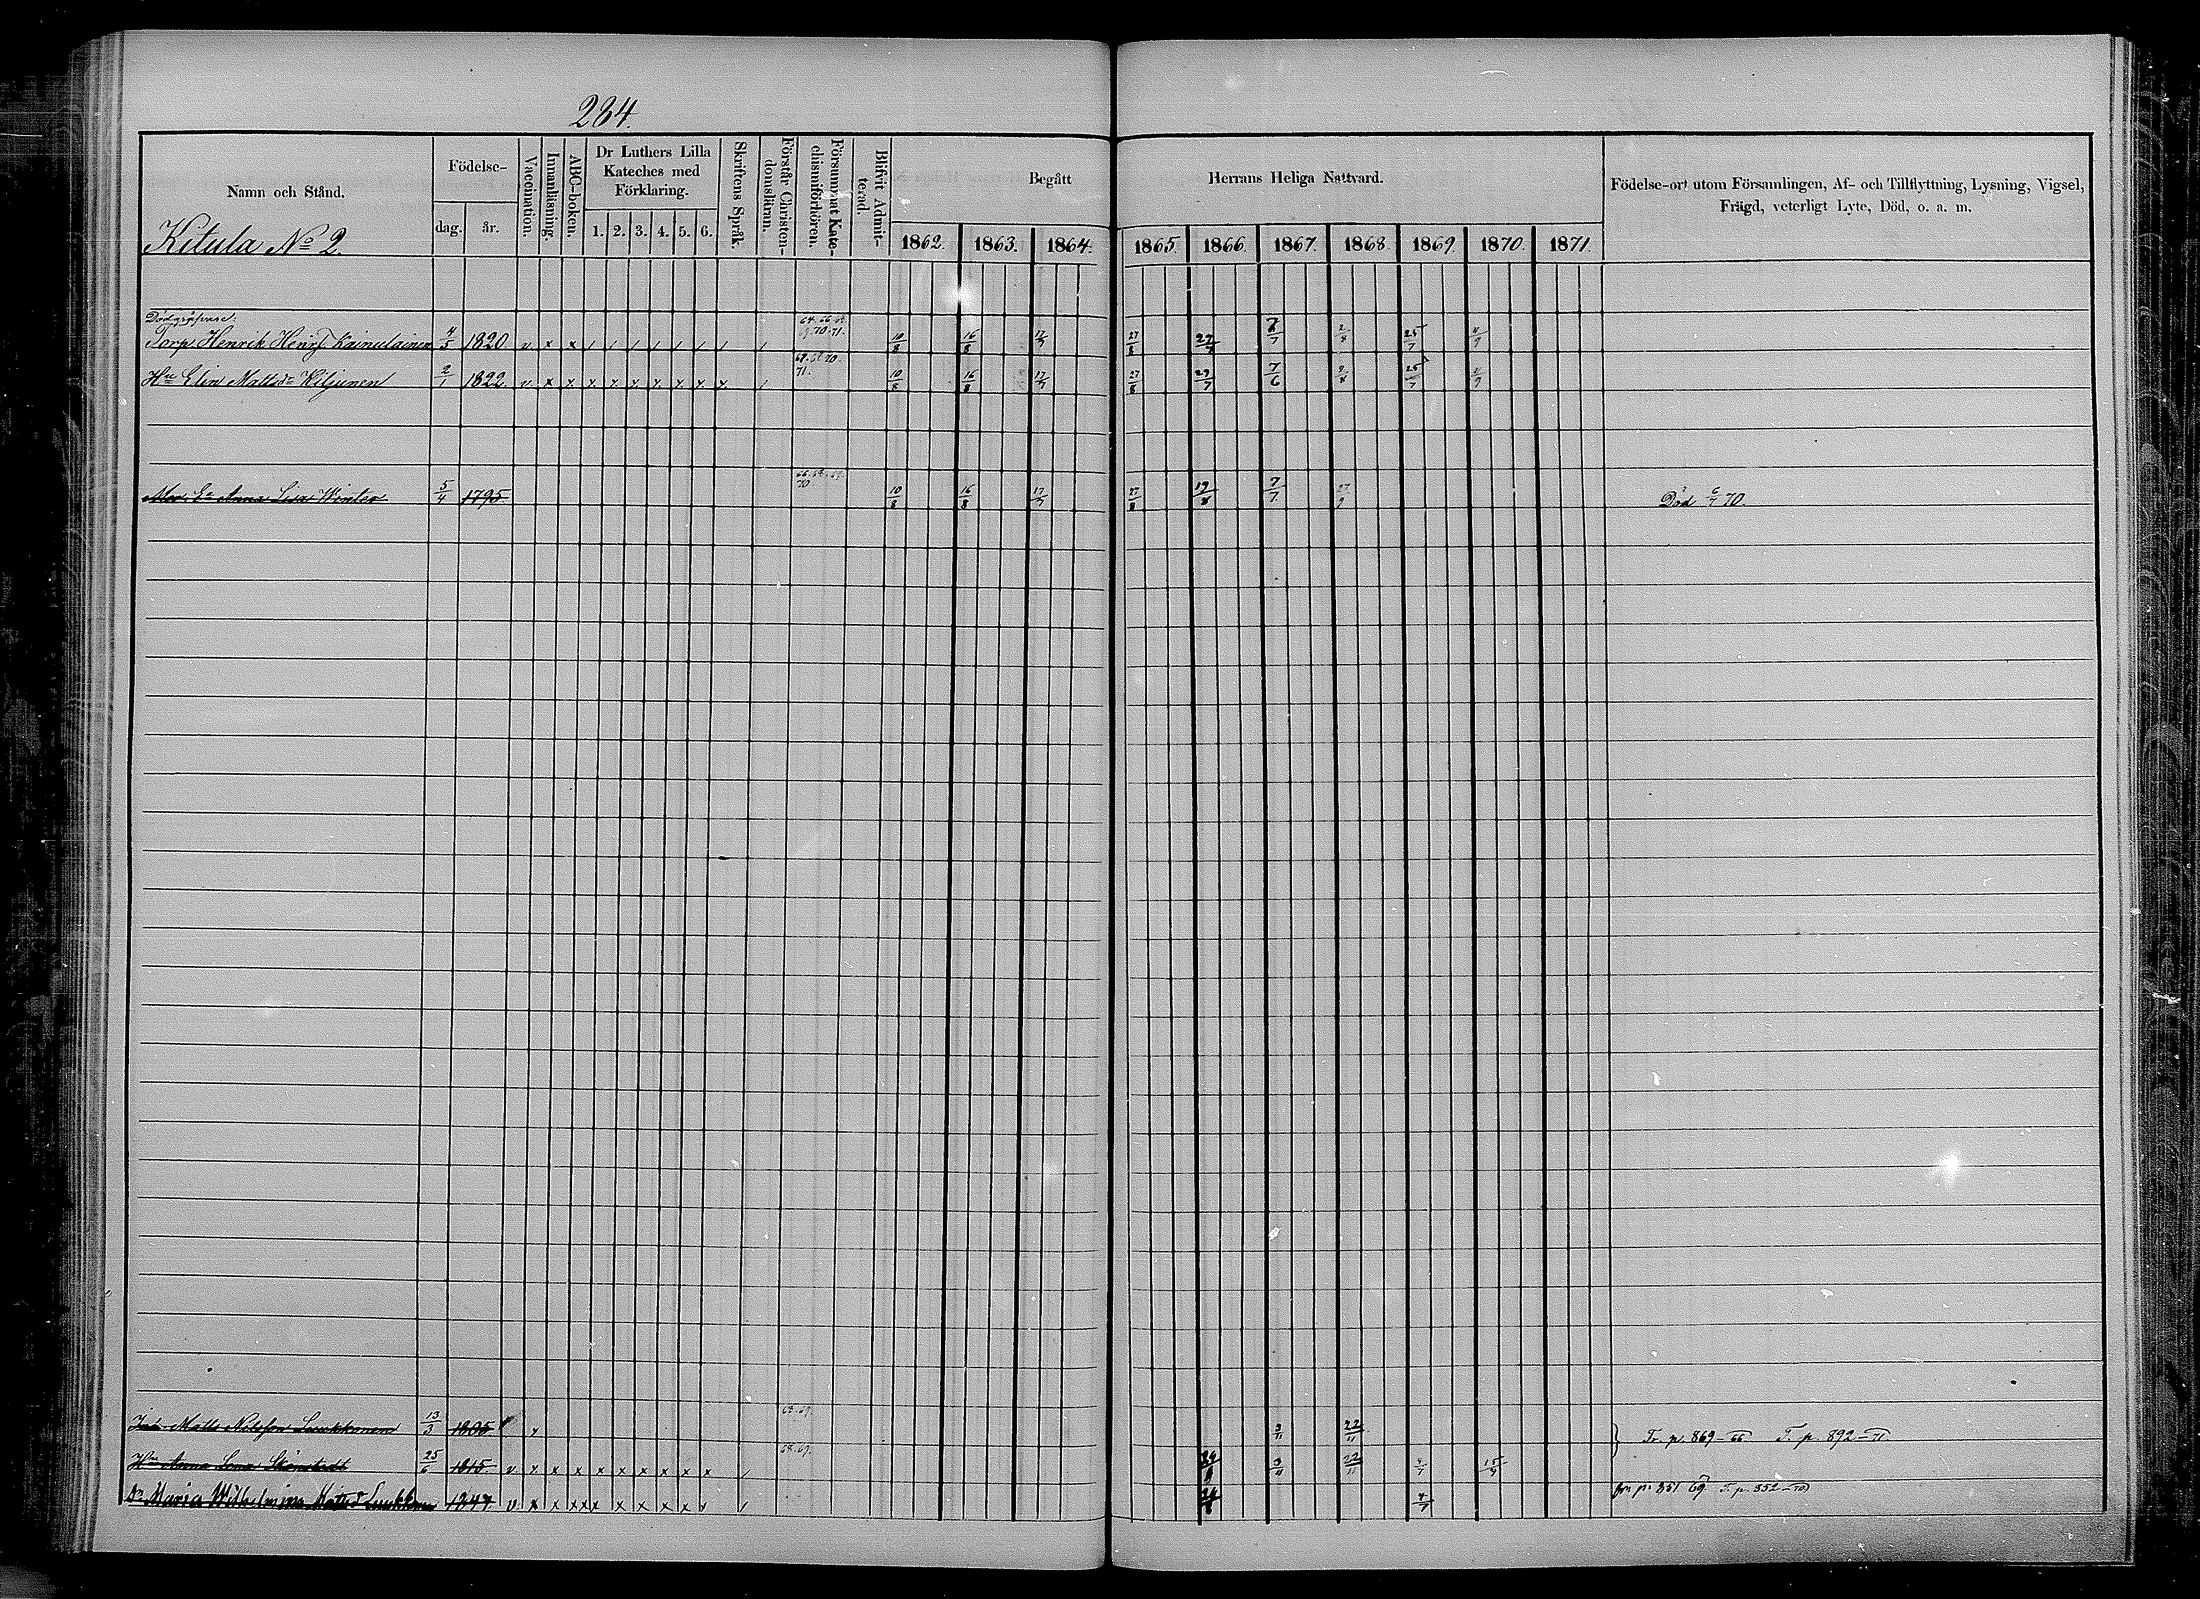 284.
Namn och Stånd.
Kitula No 2.
Födelse-
dag. år.
Vaccination.
Innanläsning.
ABC-boken.
Dr Luthers Lilla
Kateches med
Förklaring.
1. 2. 3. 4. 5. 6.
Skriftens Språk.
Förstår Christen-
domsläran.
Försummat Kate-
chismiförhören.
Blifvit Admit-
terad.
Begått Herrans Heliga Nattvard.
1862. 1863. 1864. 1865. 1866. 1867. 1868. 1869. 1870. 1871.
Födelse-ort utom Församlingen, Af- och Tillflyttning, Lysning, Vigsel,
Frägd, veterligt Lyte, Död, o. a. m.
Dödgräfvare.
Torp Henrik Henrs Kainulainen 4/5 1820 v x x / / / / / / / / 10/8 16/8 17/7 27/8 7/7 2/8 25/7 11/9
70. 71.
Hu Elin Mattsdr Kiljunen 2/1 1822 v x x x x x x x x x / 71. 10/8 16/8 17/7 27/8 29/7 7/6 2/8 25/7 11/9
Anna Lisa Winter 5/4 1795 70 10/8 16/8 17/7 27/8 19/8 7/7 27/9 Död 6/7 70.
Matts Nilsson Luukkonen 13/3 68. 69. 3/11 22/11 Fr. p. 869-66 T. p. 892-71
Hu Anna Lena 25/6 1815 v x x x x x x x x x / 68. 69. 24/8 3/11 22/11 4/7 15/9
Dr Maria Wilhelmina Mattsdr 1847 v x x x x x x x x x / 24/8 4/7 fr. p. 851 69 T. p. 852-70